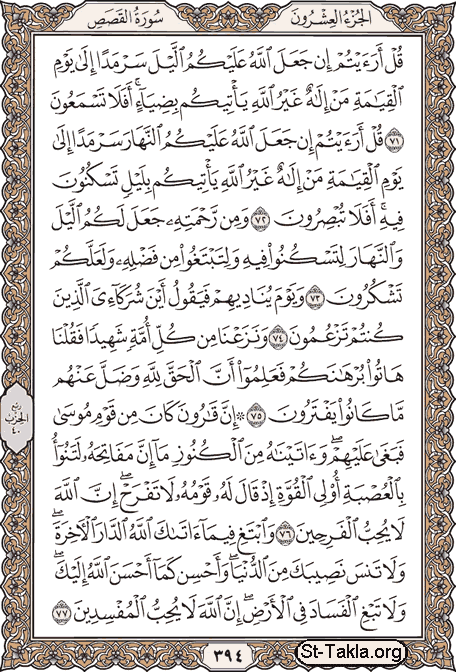 سُورَةُ القَصَصِ
الجُزْءُ العِشْرُونَ
قُلْ أَرَءَيْتُمْ إِن جَعَلَ ٱللَّهُ عَلَيْكُمُ ٱلَّيْلَ سَرْمَدًا إِلَىٰ يَوْمِ
ٱلْقِيَٰمَةِ مَنْ إِلَٰهٌ غَيْرُ ٱللَّهِ يَأْتِيكُم بِضِيَآءٍ ۖ أَفَلَا تَسْمَعُونَ
٧١ قُلْ أَرَءَيْتُمْ إِن جَعَلَ ٱللَّهُ عَلَيْكُمُ ٱلنَّهَارَ سَرْمَدًا إِلَىٰ
يَوْمِ ٱلْقِيَٰمَةِ مَنْ إِلَٰهٌ غَيْرُ ٱللَّهِ يَأْتِيكُم بِلَيْلٍ تَسْكُنُونَ
فِيهِ ۖ أَفَلَا تُبْصِرُونَ ٧٢ وَمِن رَّحْمَتِهِۦ جَعَلَ لَكُمُ ٱلَّيْلَ
وَٱلنَّهَارَ لِتَسْكُنُوا۟ فِيهِ وَلِتَبْتَغُوا۟ مِن فَضْلِهِۦ وَلَعَلَّكُمْ
تَشْكُرُونَ ٧٣ وَيَوْمَ يُنَادِيهِمْ فَيَقُولُ أَيْنَ شُرَكَآءِىَ ٱلَّذِينَ
كُنتُمْ تَزْعُمُونَ ٧٤ وَنَزَعْنَا مِن كُلِّ أُمَّةٍ شَهِيدًا فَقُلْنَا
هَاتُوا۟ بُرْهَٰنَكُمْ فَعَلِمُوٓا۟ أَنَّ ٱلْحَقَّ لِلَّهِ وَضَلَّ عَنْهُم
مَّا كَانُوا۟ يَفْتَرُونَ ٧٥ ۞ إِنَّ قَٰرُونَ كَانَ مِن قَوْمِ مُوسَىٰ
فَبَغَىٰ عَلَيْهِمْ ۖ وَءَاتَيْنَٰهُ مِنَ ٱلْكُنُوزِ مَآ إِنَّ مَفَاتِحَهُۥ لَتَنُوٓأُ
بِٱلْعُصْبَةِ أُو۟لِى ٱلْقُوَّةِ إِذْ قَالَ لَهُۥ قَوْمُهُۥ لَا تَفْرَحْ ۖ إِنَّ ٱللَّهَ
لَا يُحِبُّ ٱلْفَرِحِينَ ٧٦ وَٱبْتَغِ فِيمَآ ءَاتَىٰكَ ٱللَّهُ ٱلدَّارَ ٱلْءَاخِرَةَ ۖ
وَلَا تَنسَ نَصِيبَكَ مِنَ ٱلدُّنْيَا ۖ وَأَحْسِن كَمَآ أَحْسَنَ ٱللَّهُ إِلَيْكَ ۖ
وَلَا تَبْغِ ٱلْفَسَادَ فِى ٱلْأَرْضِ ۖ إِنَّ ٱللَّهَ لَا يُحِبُّ ٱلْمُفْسِدِينَ ٧٧
ربع
الحزب
٤٠
٣٩٤
St-Takla.org